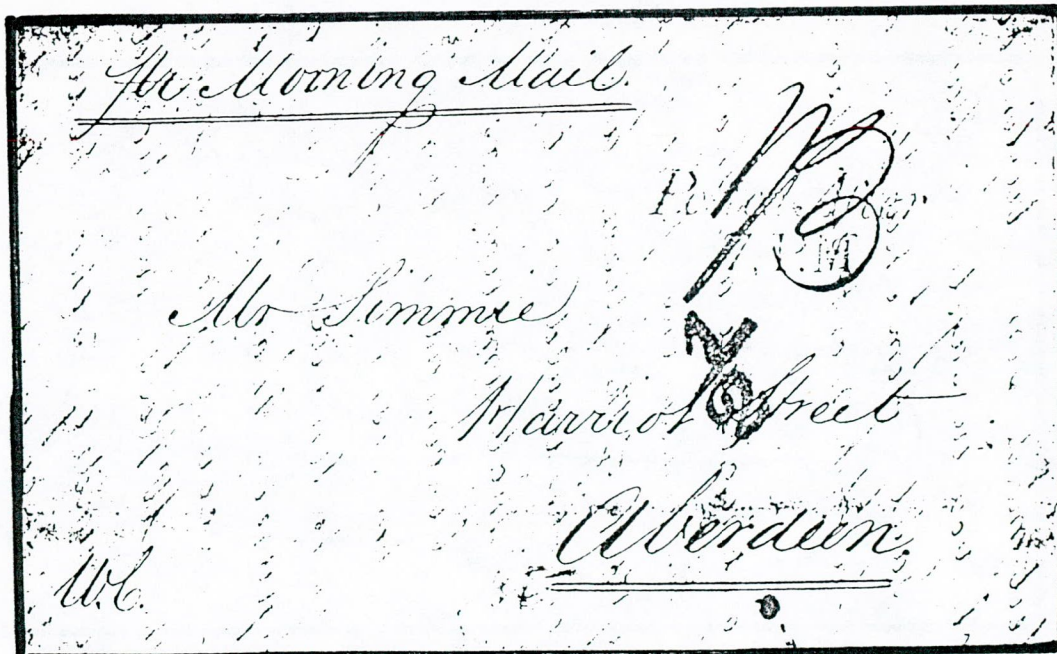 pr. Morning Mail.
P.M
Mr Simmie
Harriot Street
Aberdeen.
W.C.